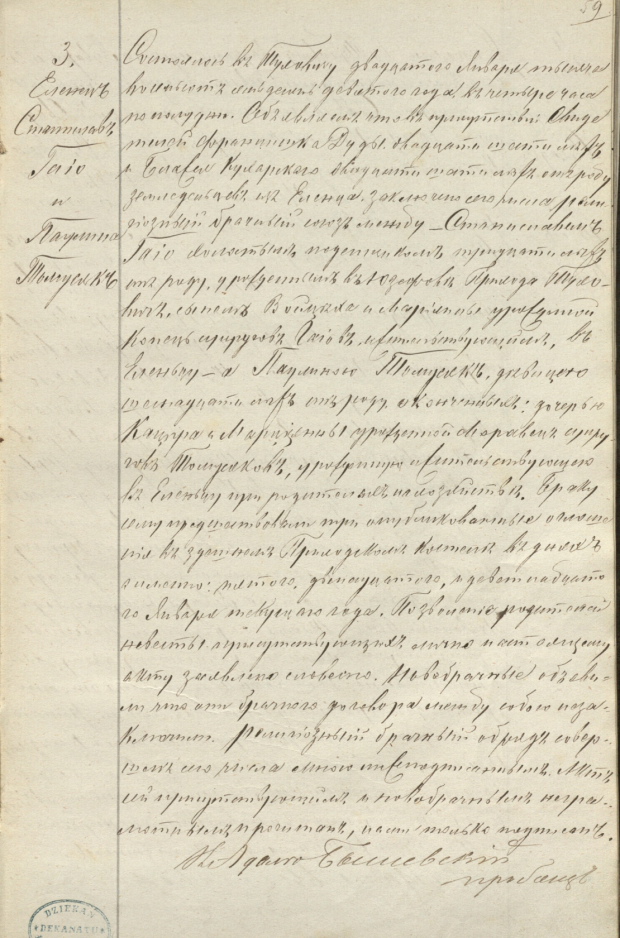 59
3.
Еленецъ
Станиславъ
Гаіо
и
Паулина
Томусякъ
Состоялось въ Туловичу двадцатого Января тысяча
восемьсотъ семьдесятъ девятого года въ четыре часа
по полудни. Объявляемъ что въ присутствіи Свиде
телей Францишка Дуды двадцати шести лѣтъ
и Блажея Кухарскего двадцати шести лѣтъ отъ роду
земледельцевъ изъ Еленца заключено сего числа рели
гіозный брачный союзъ между Станиславомъ
Гаіо холостымъ поденщикомъ тридцати лѣтъ
отъ роду, урожденнымъ въ Юзефовѣ Прихода Туло
вичъ, сыномъ Войцеха и Маріанны урожденной
Конецъ супруговъ Гаіовъ, жительствующимъ въ
Еленьцу а Паулиною Томусякъ, дѣвицею
шестнадцати лѣтъ отъ роду оконченныхъ: дочерью
Кацпра и Марцыанны урожденной Моравецъ супру
говъ Томусяковъ, урожденную и жительствующею
въ Еленьцу при родителяхъ на хозяйствѣ. Браку
сему предшествовали три опубликованныя оглаше
нія въ здѣшнемъ Приходскомъ костелѣ въ дняхъ
именно: пятого, двенадцатого, и девятнадцато
го Января текущаго года. Позволеніе родителей
невесты присутствующихъ лично и настоящему
акту заявлено словесно. Новобрачные объяви
ли что они брачного договора между собою неза
ключили. Религіозный брачный обрядъ совер
шенъ сего числа мною нижеподписаннымъ. Актъ
сей присутствующимъ и новобрачнымъ негра
мотнымъ прочитанъ, нами только подписанъ.
Кс. Адольфъ
пробощъ
DZIEKAN
DEKANATU